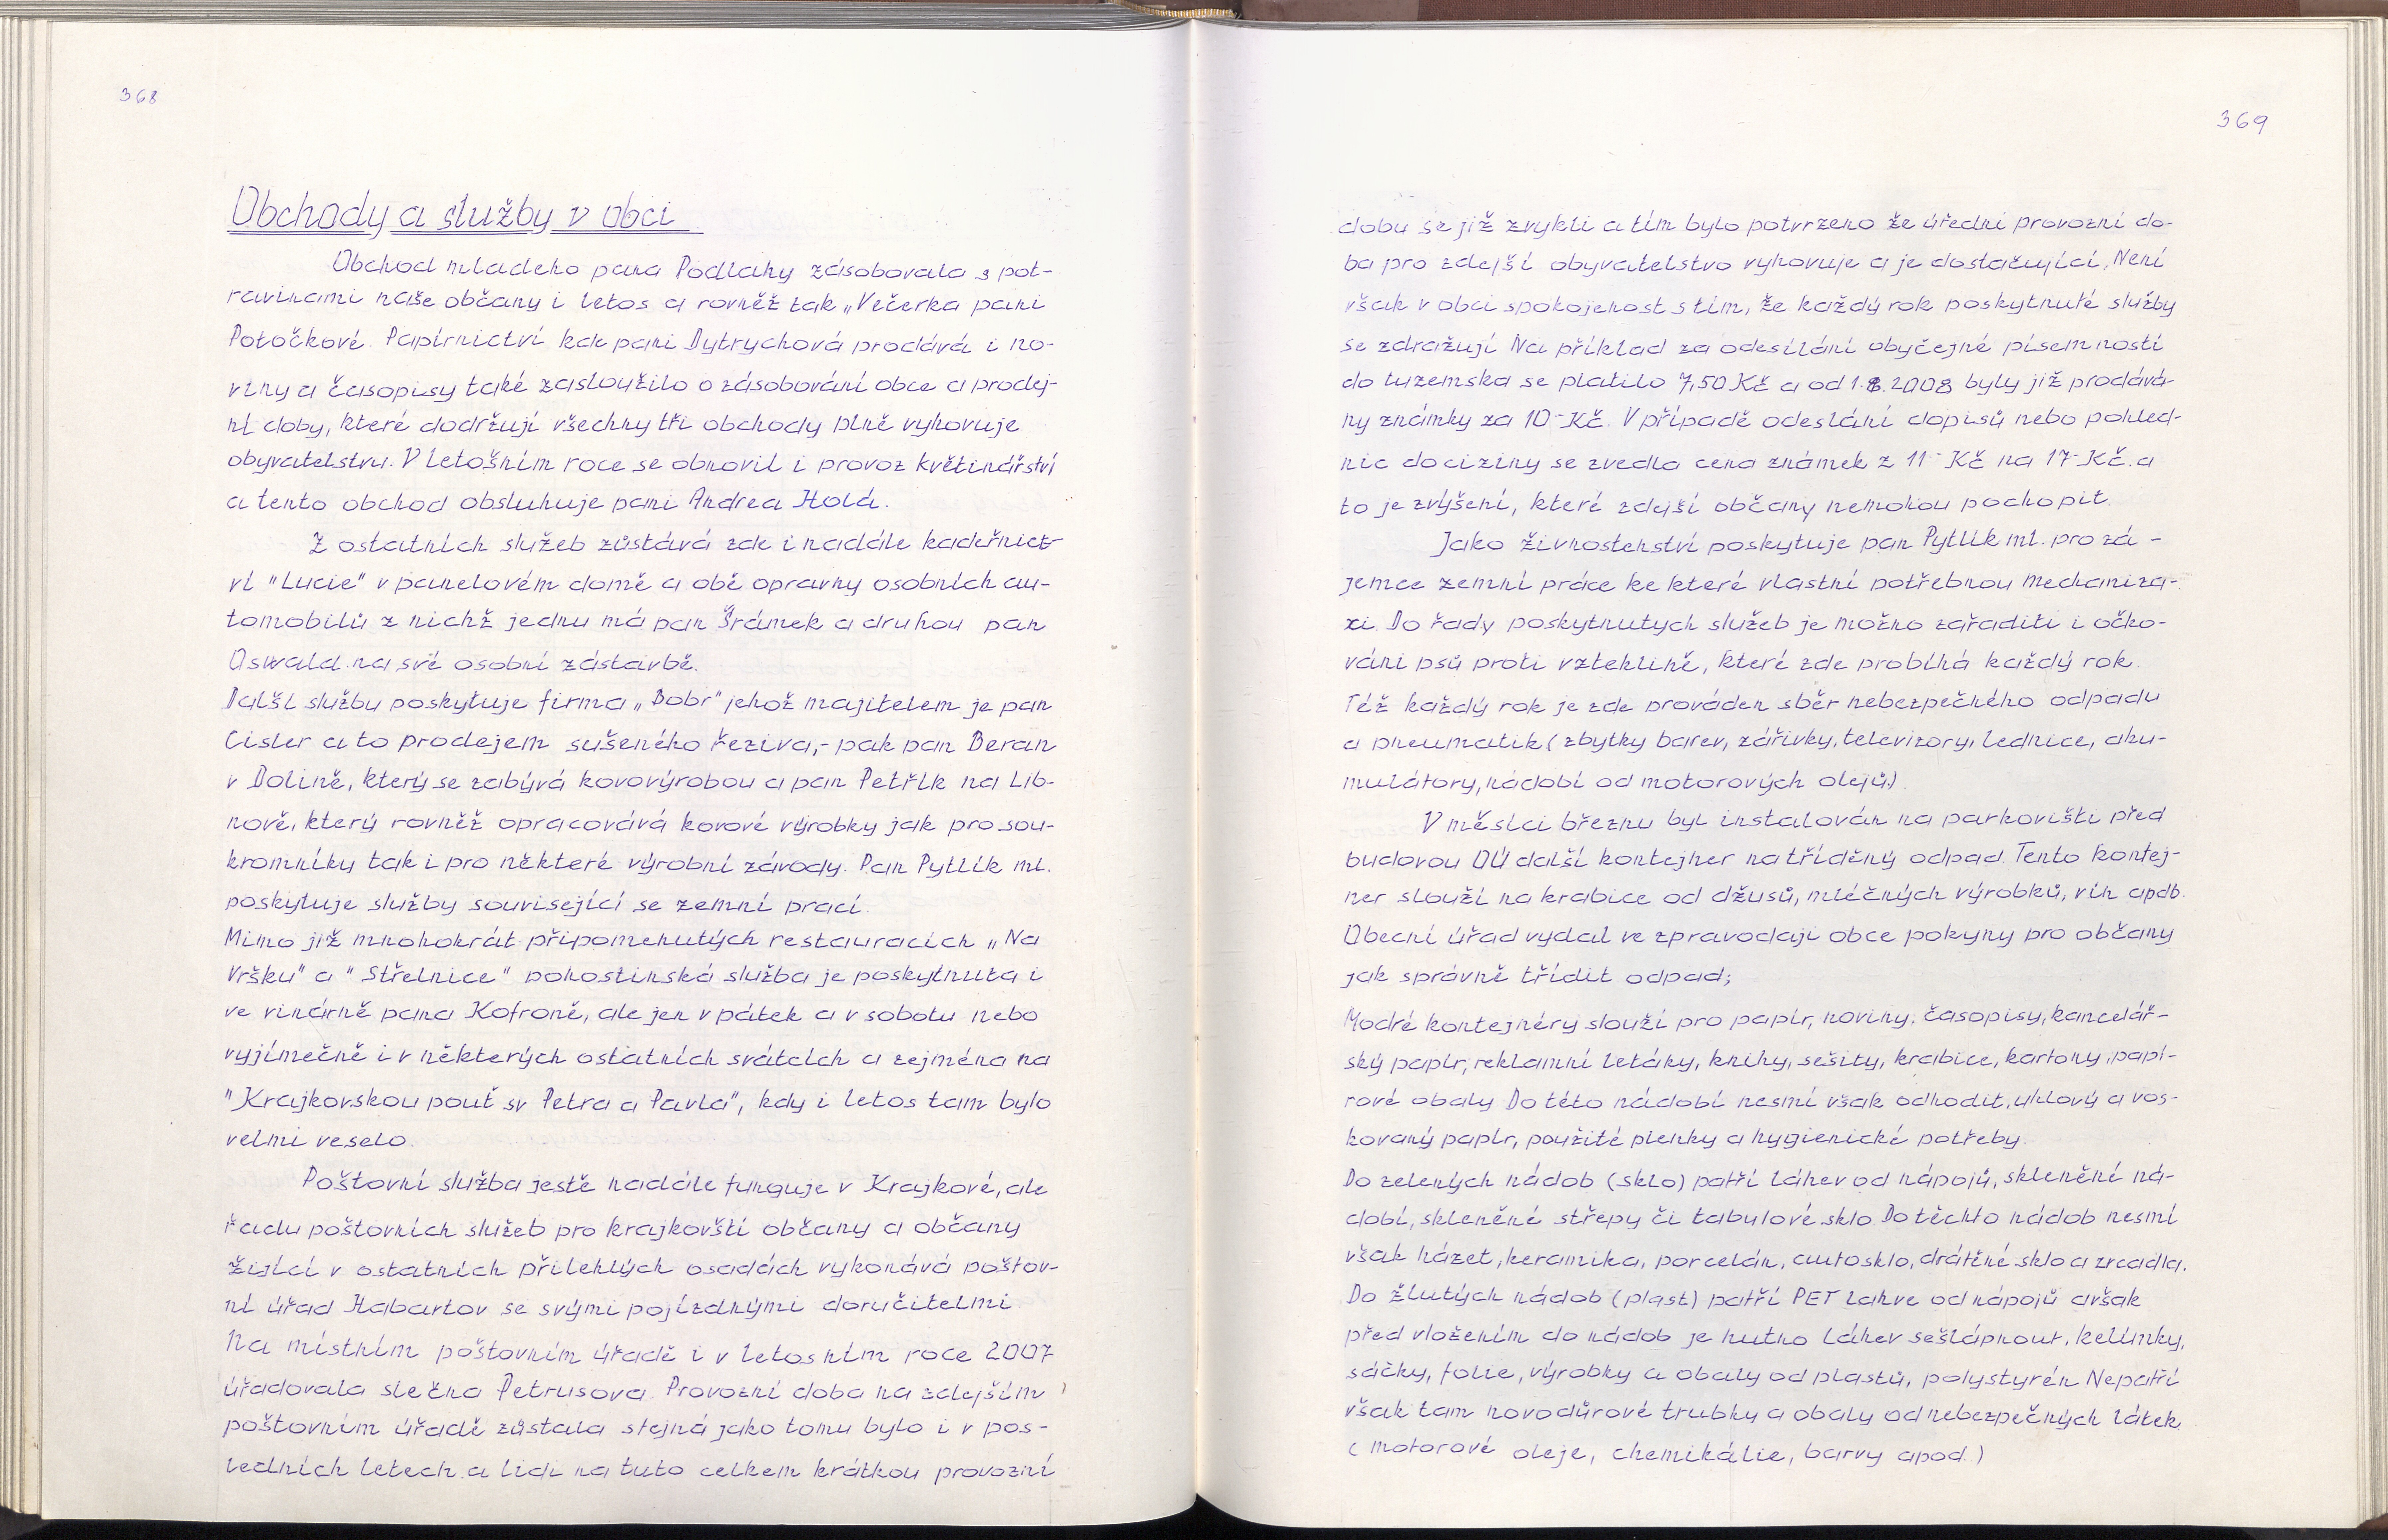 368
Obchody a služby v obci
Obchod mladeho pana Podlahy zásobovala s pot-
ravinami naše občany i letos a rovněž tak „Večerka pani
Potočkové. Papírnictví kde pani Dytrychová prodává i no-
viny a časopisy také zasloužilo o zásobování obce a prodej-
ní doby, které dodržují všechny tři obchody plně vyhovuje
obyvatelstvu. V letošním roce se obnovil i provoz květinářství
a tento obchod obsluhuje pani Andrea Holá.
Z ostatních služeb zůstává zde i nadále kadeřnict-
ví "Lucie" v panelovém domě a obě opravny osobních au-
tomobilů z nichž jednu má pan Šrámek a druhou pan
Oswald na své osobní zástavbě.
Další službu poskytuje firma „Bobr" jehož majitelem je pan
Cisler a to prodejem sušeného řeziva,- pak pan Beran
v Dolině, který se zabývá kovovýrobou a pan Petřík na Lib-
nově, který rovněž opracovává kovové výrobky jak pro sou-
kromníky tak i pro některé výrobní závody. Pan Pytlík ml.
poskytuje služby související se zemní prací.
Mimo již mnohokrát připomenutých restauracích „Na
Vršku" a "Střelnice" pohostinská služba je poskytnuta i
ve vinárně pana Kofroně, ale jen v pátek a v sobotu nebo
vyjímečně i v některých ostatních svátcích a zejména na
"Krajkovskou pouť sv Petra a Pavla", kdy i letos tam bylo
velmi veselo.
Poštovní služba jestě nadále funguje v Krajkové, ale
řadu poštovních služeb pro krajkovští občany a občany
žijící v ostatních přilehlých osadách vykonává poštov-
ní úřad Habartov se svými pojízdnými doručitelmi
Na místním poštovním úřadě i v letosním roce 2007
úřadovala slečna Petrusova. Provozní doba na zdejším
poštovním úřadě zůstala stejná jako tomu bylo i v pos-
ledních letech a lidi na tuto celkem krátkou provozní
369
dobu se již zvykli a tím bylo potvrzeno že úřední provozní do-
ba pro zdejší obyvatelstvo vyhovuje a je dostačující. Není
však v obci spokojenost s tím, že každý rok poskytnuté služby
se zdražují Na příklad za odesílání obyčejné písemností
do tuzemska se platilo 7,50 Kč a od 1. 2008 byly již prodává-
ny známky za 10- Kč. V případě odeslání dopisů nebo pohled-
nic do ciziny se zvedla cena známek z 11- Kč na 17- Kč. a
to je zvýšení, které zdejší občany nemohou pochopit.
Jako živnostenství poskytuje pan Pytlík ml. pro zá-
jemce zemní práce ke které vlastní potřebnou mechaniza-
xi. Do řady poskytnutych služeb je možno zařaditi i očko-
váni psů proti vzteklině, které zde probíhá každý rok.
Též každý rok je zde prováden sběr nebezpečného odpadu
a pneumatik (zbytky barev, zářivky, televizory, lednice, aku-
mulátory, nádobí od motorových olejů.)
V měsíci březnu byl instalován na parkovišti před
budovou OÚ další kontejner na tříděný odpad. Tento kontej-
ner slouží na krabice od džusů, mléčných výrobků, vín apdb.
Obecní úřad vydal ve zpravodaji obce pokyny pro občany
jak správně třídit odpad;
Modré kontejnéry slouží pro papír, noviny, časopisy, kancelář-
ský papír, reklamní letáky, knihy, sešity, krabice, kartony, papí-
rové obaly Do této nádobí nesmí však odhodit, uhlový a vos-
kovaný papír, použité plenky a hygienické potřeby.
Do zelených nádob (sklo) patří láhev od nápojů, sklenění ná-
dobí, skleněné střepy či tabulové sklo Do těchto nádob nesmí
však házet, keramika, porcelán, autosklo, drátěné sklo a zrcadla.
Do žlutých nádob (plast) patří PET lahve od nápojů avšak
před vložením do nádob je nutno láhev sešlápnout, kelímky,
sáčky, folie, výrobky a obaly od plastů, polystyrén Nepatří
však tam novodůrové trubky a obaly od nebezpečných látek
(motorové oleje, chemikálie, barvy apod.)